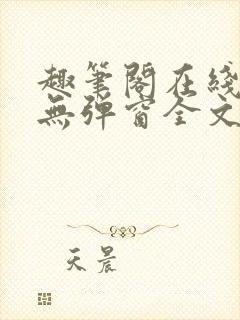 趣筆閣在綫
無彈窗全文
天晨